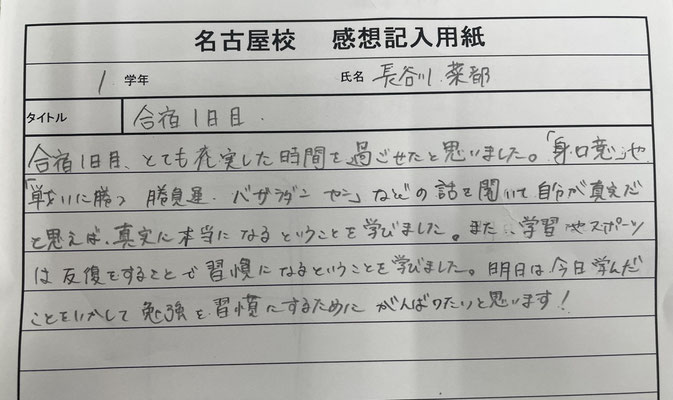 名古屋校 感想記入用紙
1 学年 氏名 長谷川 菜都
タイトル 合宿1日目.
合宿1日目、とても充実した時間を過ごせたと思いました。「身口意」や
「戦いに勝つ 勝負運. バサラダン ヤン」などの話を聞いて自分が真実だ
と思えば、真実に本当になるということを学びました。また、学習やスポーツ
は反復をすることで習慣になるということを学びました。明日は今日学んだ
ことをいかして勉強を習慣にするためにがんばりたいと思います!